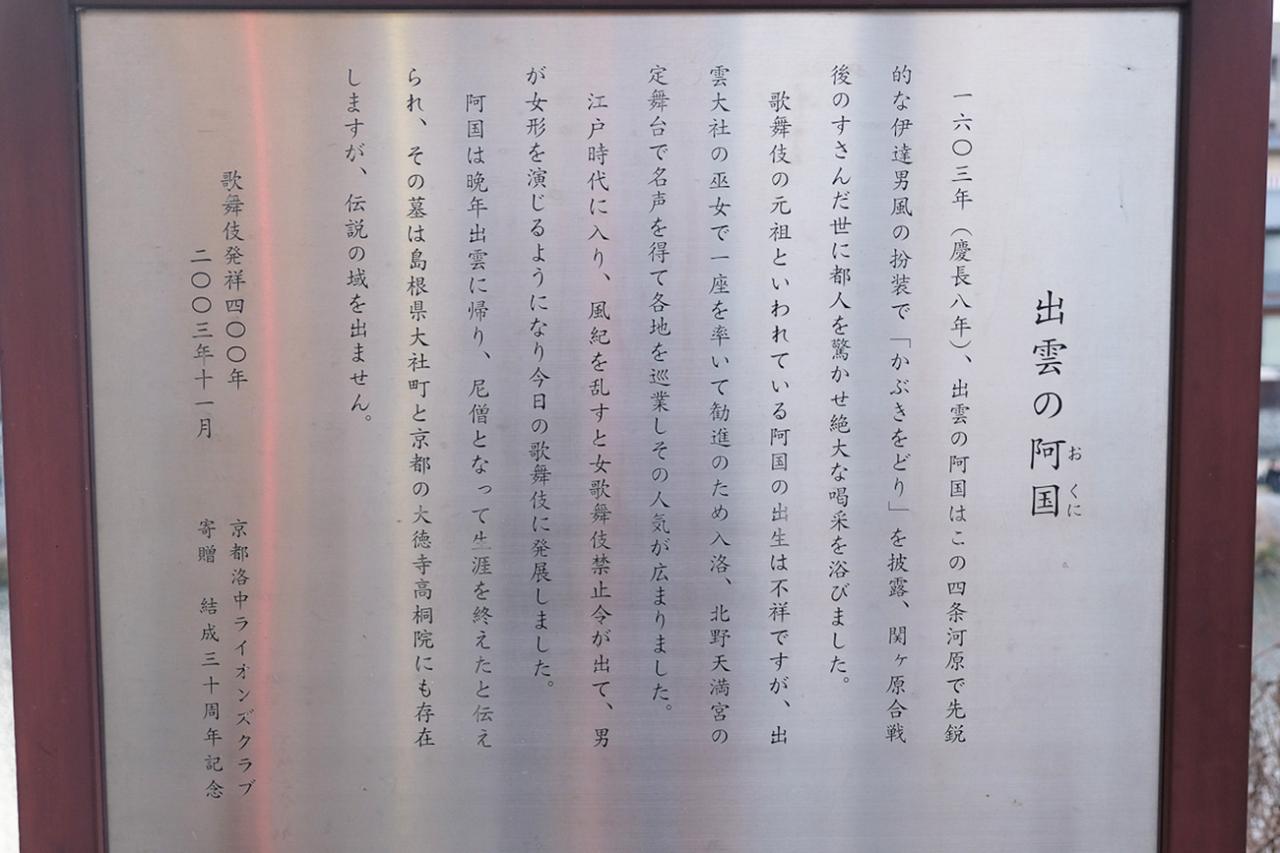 出雲の阿国
おくに
一六〇三年（慶長八年）、出雲の阿国はこの四条河原で先鋭
的な伊達男風の扮装で「かぶきをどり」を披露、関ヶ原合戦
後のすさんだ世に都人を驚かせ絶大な喝采を浴びました。
歌舞伎の元祖といわれている阿国の出生は不祥ですが、出
雲大社の巫女で一座を率いて勧進のため入洛、北野天満宮の
定舞台で名声を得て各地を巡業しその人気が広まりました。
江戸時代に入り、風紀を乱すと女歌舞伎禁止令が出て、男
が女形を演じるようになり今日の歌舞伎に発展しました。
阿国は晩年出雲に帰り、尼僧となって生涯を終えたと伝え
られ、その墓は島根県大社町と京都の大徳寺高桐院にも存在
しますが、伝説の域を出ません。
歌舞伎発祥四〇〇年
二〇〇三年十一月
京都洛中ライオンズクラブ
寄贈 結成三十周年記念